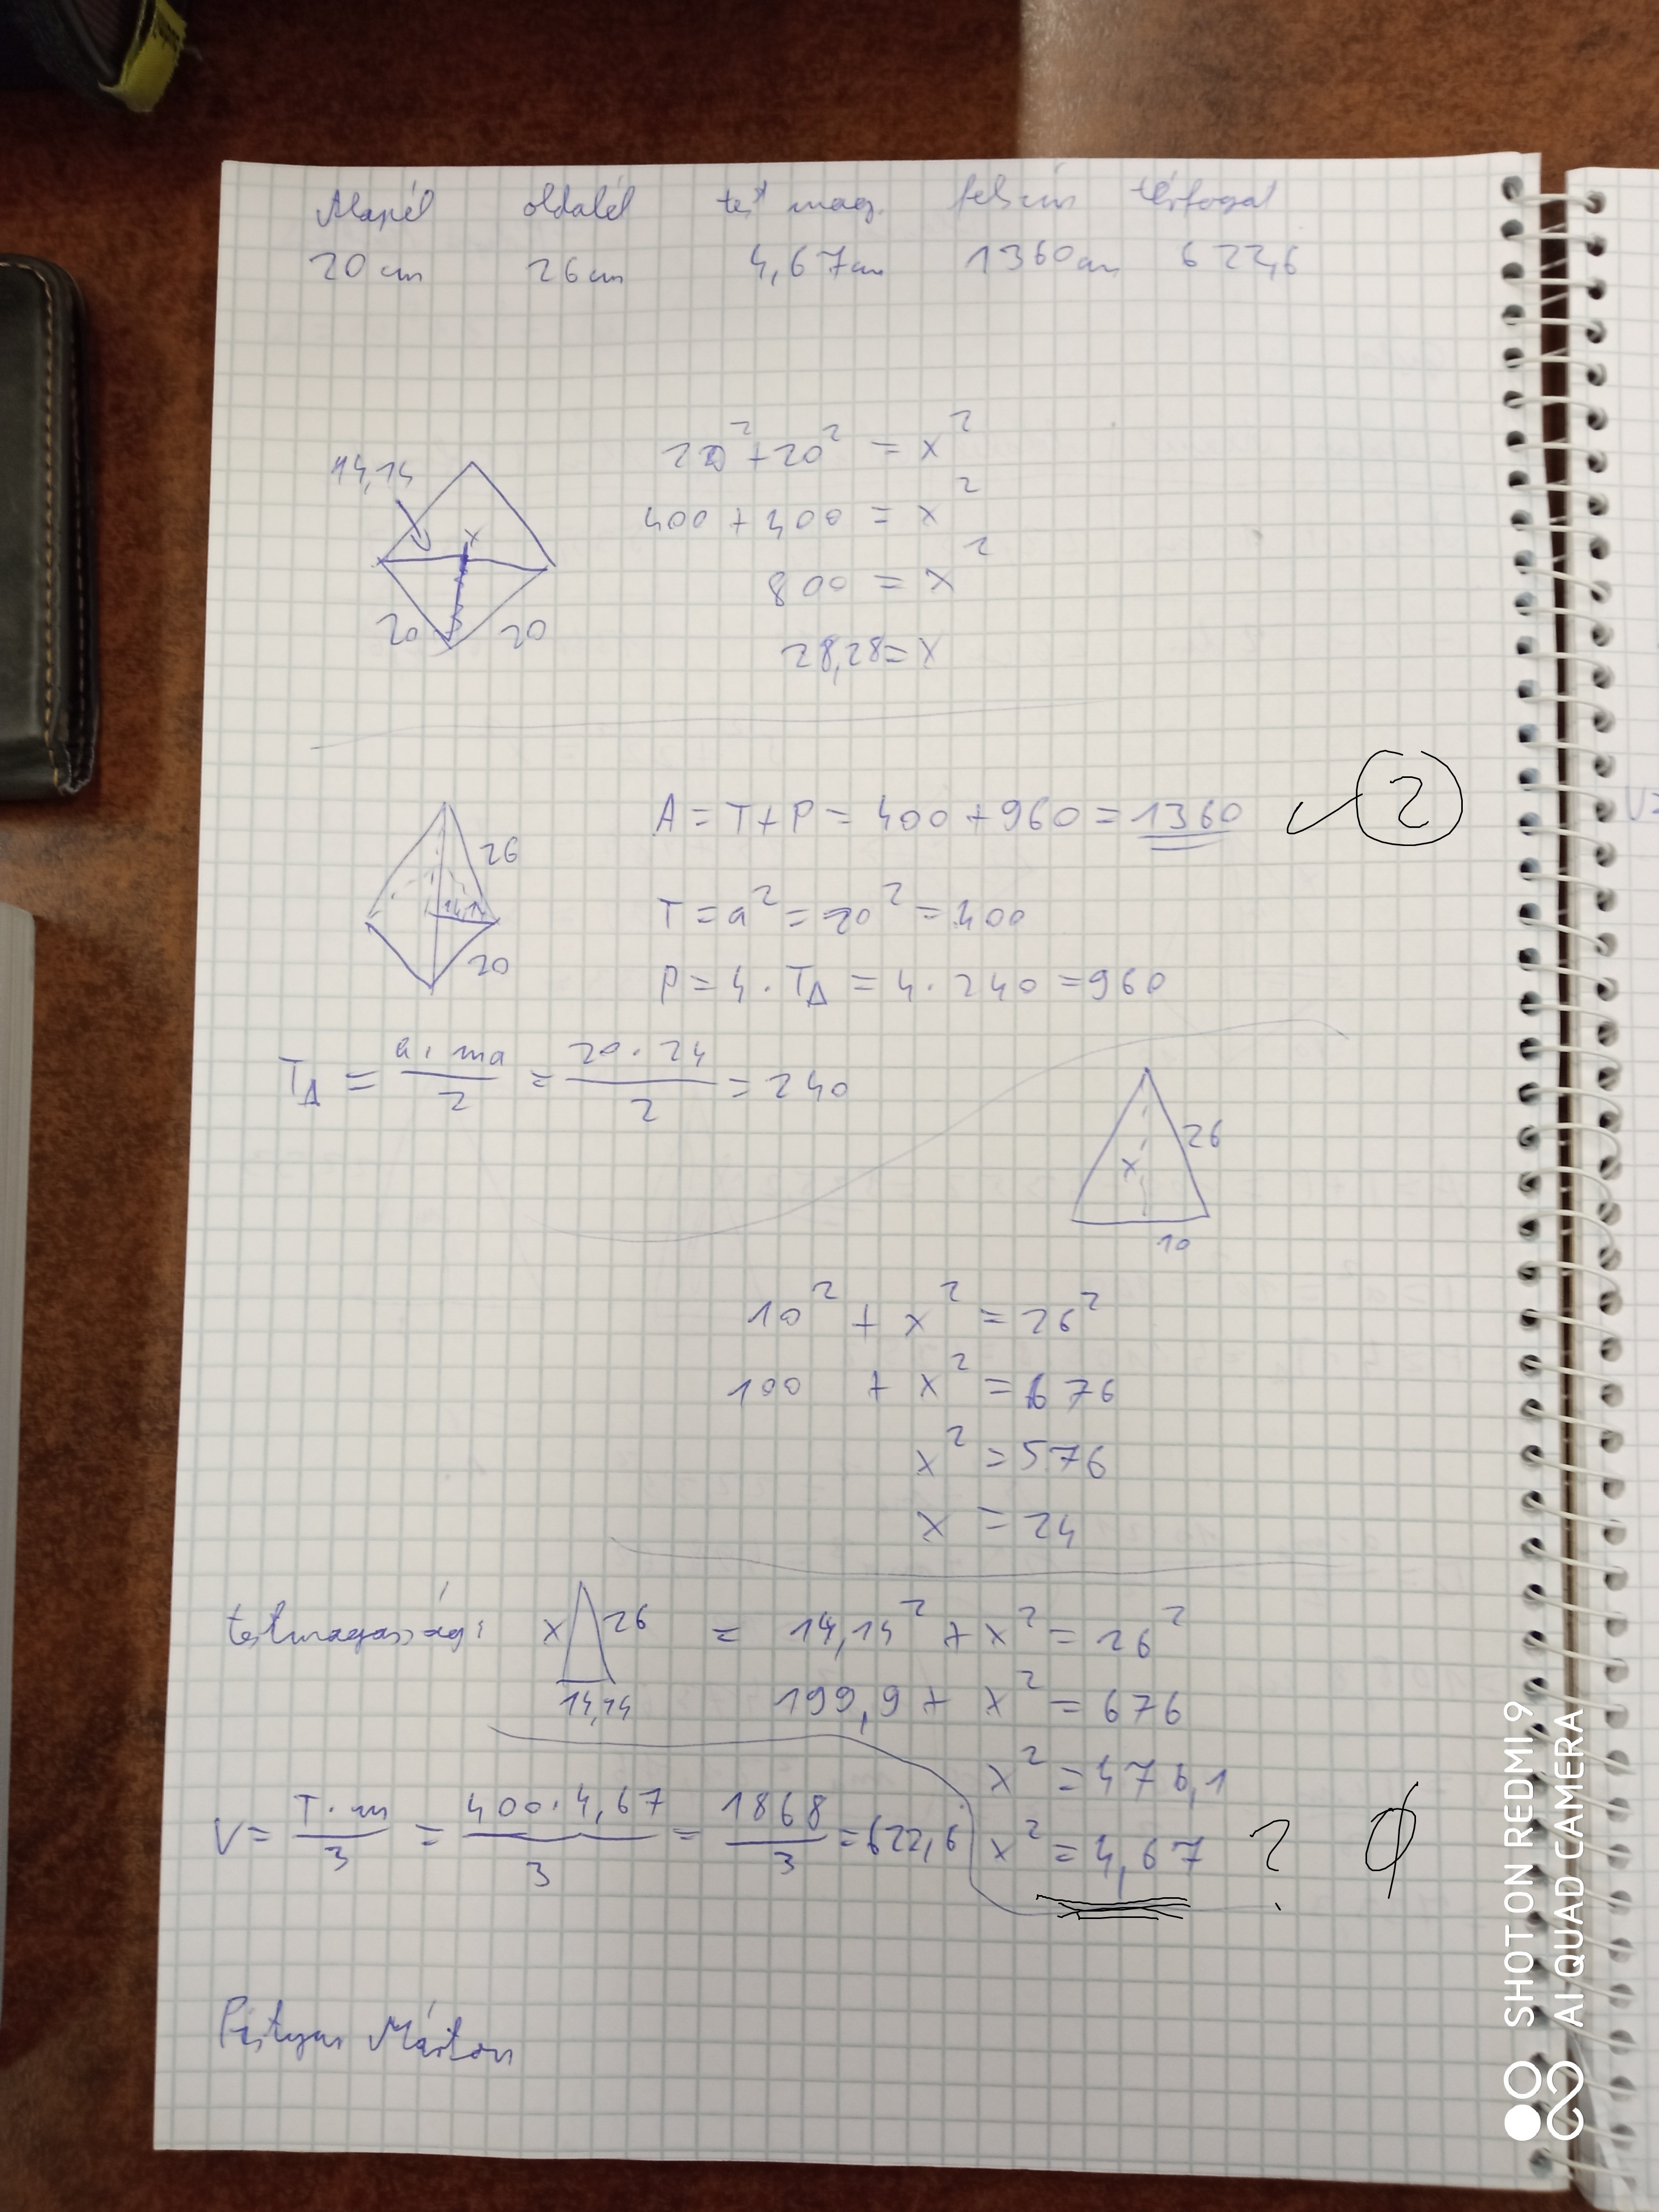 Alapél oldalél test mag. felszín térfogat
20 cm 26 cm 4,67 cm 1360 cm 622,6
14,14
x
20 20
20² + 20² = x²
400 + 400 = x²
800 = x²
28,28 = x
26
14,14
20
A = T + P = 400 + 960 = 1360 ✓ 2
T = a² = 20² = 400
P = 4 · T△ = 4 · 240 = 960
T△ = a · ma / 2 = 20 · 24 / 2 = 240
26
x
10
10² + x² = 26²
100 + x² = 676
x² = 576
x = 24
testmagasság: x 26 = 14,14² + x² = 26²
14,14 199,9 + x² = 676
x² = 476,1
V = T · m / 3 = 400 · 4,67 / 3 = 1868 / 3 = 622,6 x² = 4,67 ? Ø
Márton
SHOT ON REDMI 9
AI QUAD CAMERA